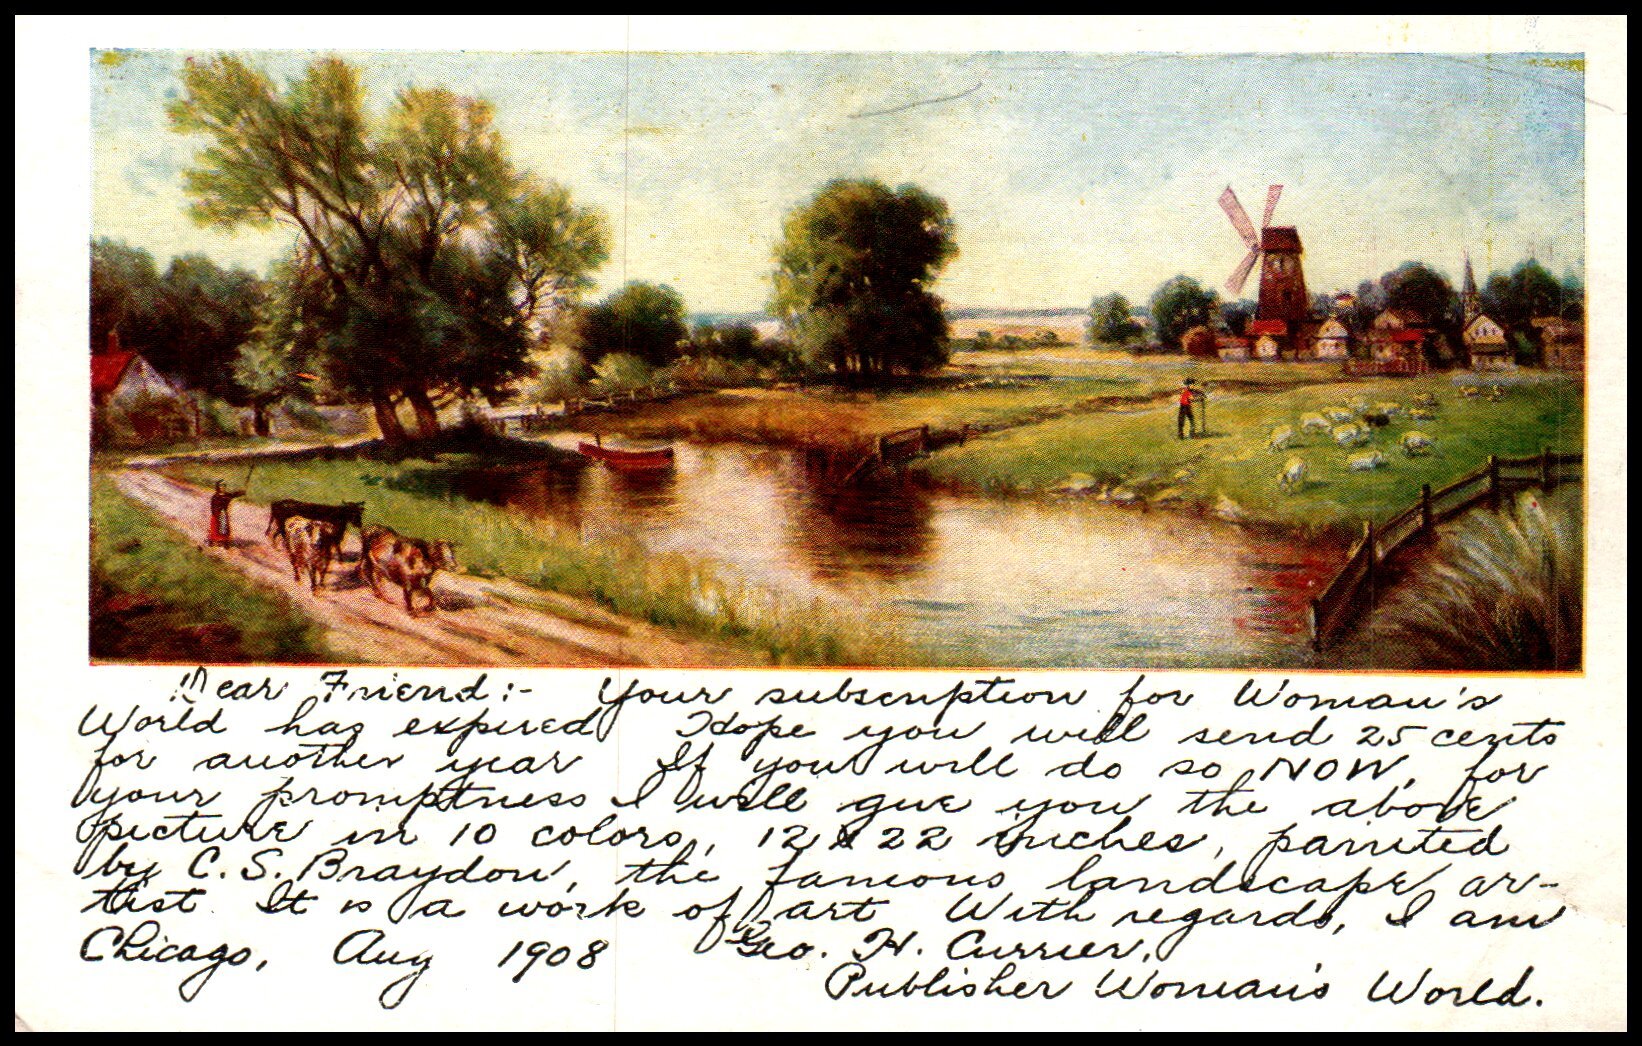 Dear Friend:- Your subscription for Woman's
World has expired Hope you will send 25 cents
for another year If you will do so NOW, for
your promptness I will give you the above
picture in 10 colors, 12 x 22 inches, painted
by C. S. Braydon, the famous landscape ar-
tist. It is a work of art With regards, I am
Chicago, Aug 1908 Geo. H. Currier,
Publisher Woman's World.